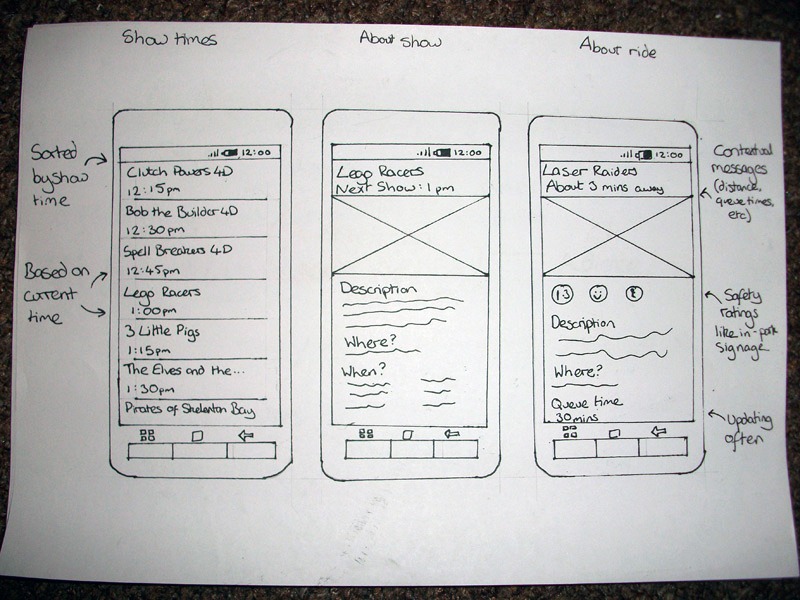 Show times
About show
About ride
Sorted
by show
time
Based on
current
time
12:00
Clutch Powers 4D
12:15pm
Bob the Builder 4D
12:30pm
Spell Breakers 4D
12:45pm
Lego Racers
1:00pm
3 Little Pigs
1:15pm
The Elves and the...
1:30pm
Pirates of Skeleton Bay
12:00
Lego Racers
Next Show: 1pm
Description
Where?
When?
12:00
Laser Raiders
About 3 mins away
1.3
Description
Where?
Queue time
30mins
Contextual
messages
(distance,
queue times,
etc)
Safety
ratings
like in-park
signage
Updating
often